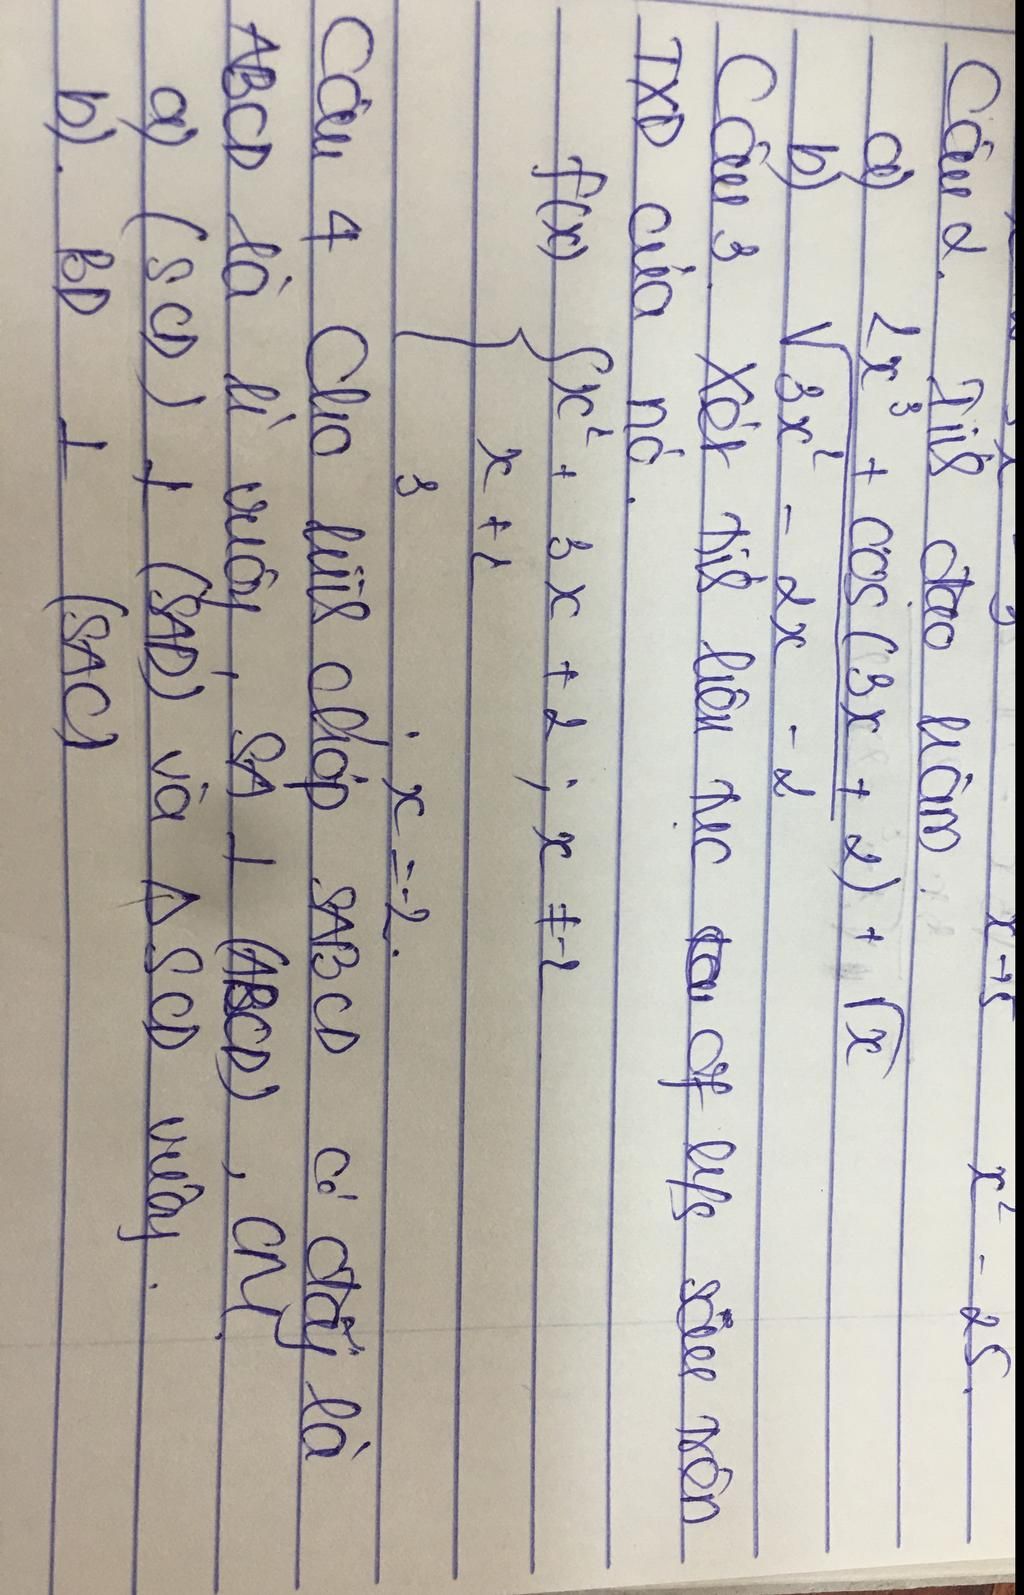 x→5 x² - 25
Câu 2. Tính đạo hàm
a) 2x³ + cos(3x + 2) + √x
b) √3x² - 2x - 2
Câu 3. Xét tính liên tục của hs sau trên
TXD của nó.
f(x) { x² + 3x + 2 ; x ≠ -2
x + 2
3 ; x = -2.
Câu 4 Cho hình chóp SABCD có đáy là
ABCD là h vuông, SA ⊥ (ABCD), CM
a) (SCD) ⊥ (SAD) và Δ SCD vuông.
b). BD ⊥ (SAC)